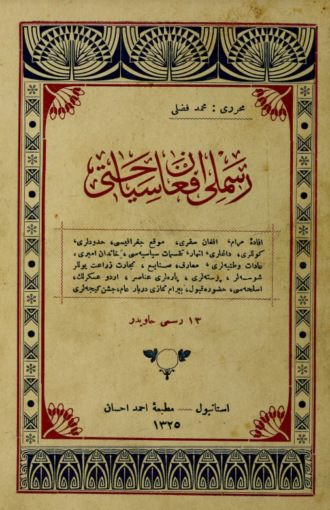 محرری : محمد فضلی
رسملی افغان سیاحتی
افادهٔ مرام، افغان سفری، موقع جغرافیسی، حدودلری،
کوللری، داغلری، انهار، تقسیمات سیاسیه‌سی، خاندان امیری،
عادات وطنیه‌لری، معارف، صنایع، تجارت زراعت یوللر
شوسه‌لر، پوسته‌لری، عناصر، اردو عسکرلك،
اسلحه‌سی، حضوره قبول، بیرام نمازی دربار عام، جشن کیجه‌لری
١٣ رسمی حاویدر
استانبول — مطبعهٔ احمد احسان
١٣٢٥